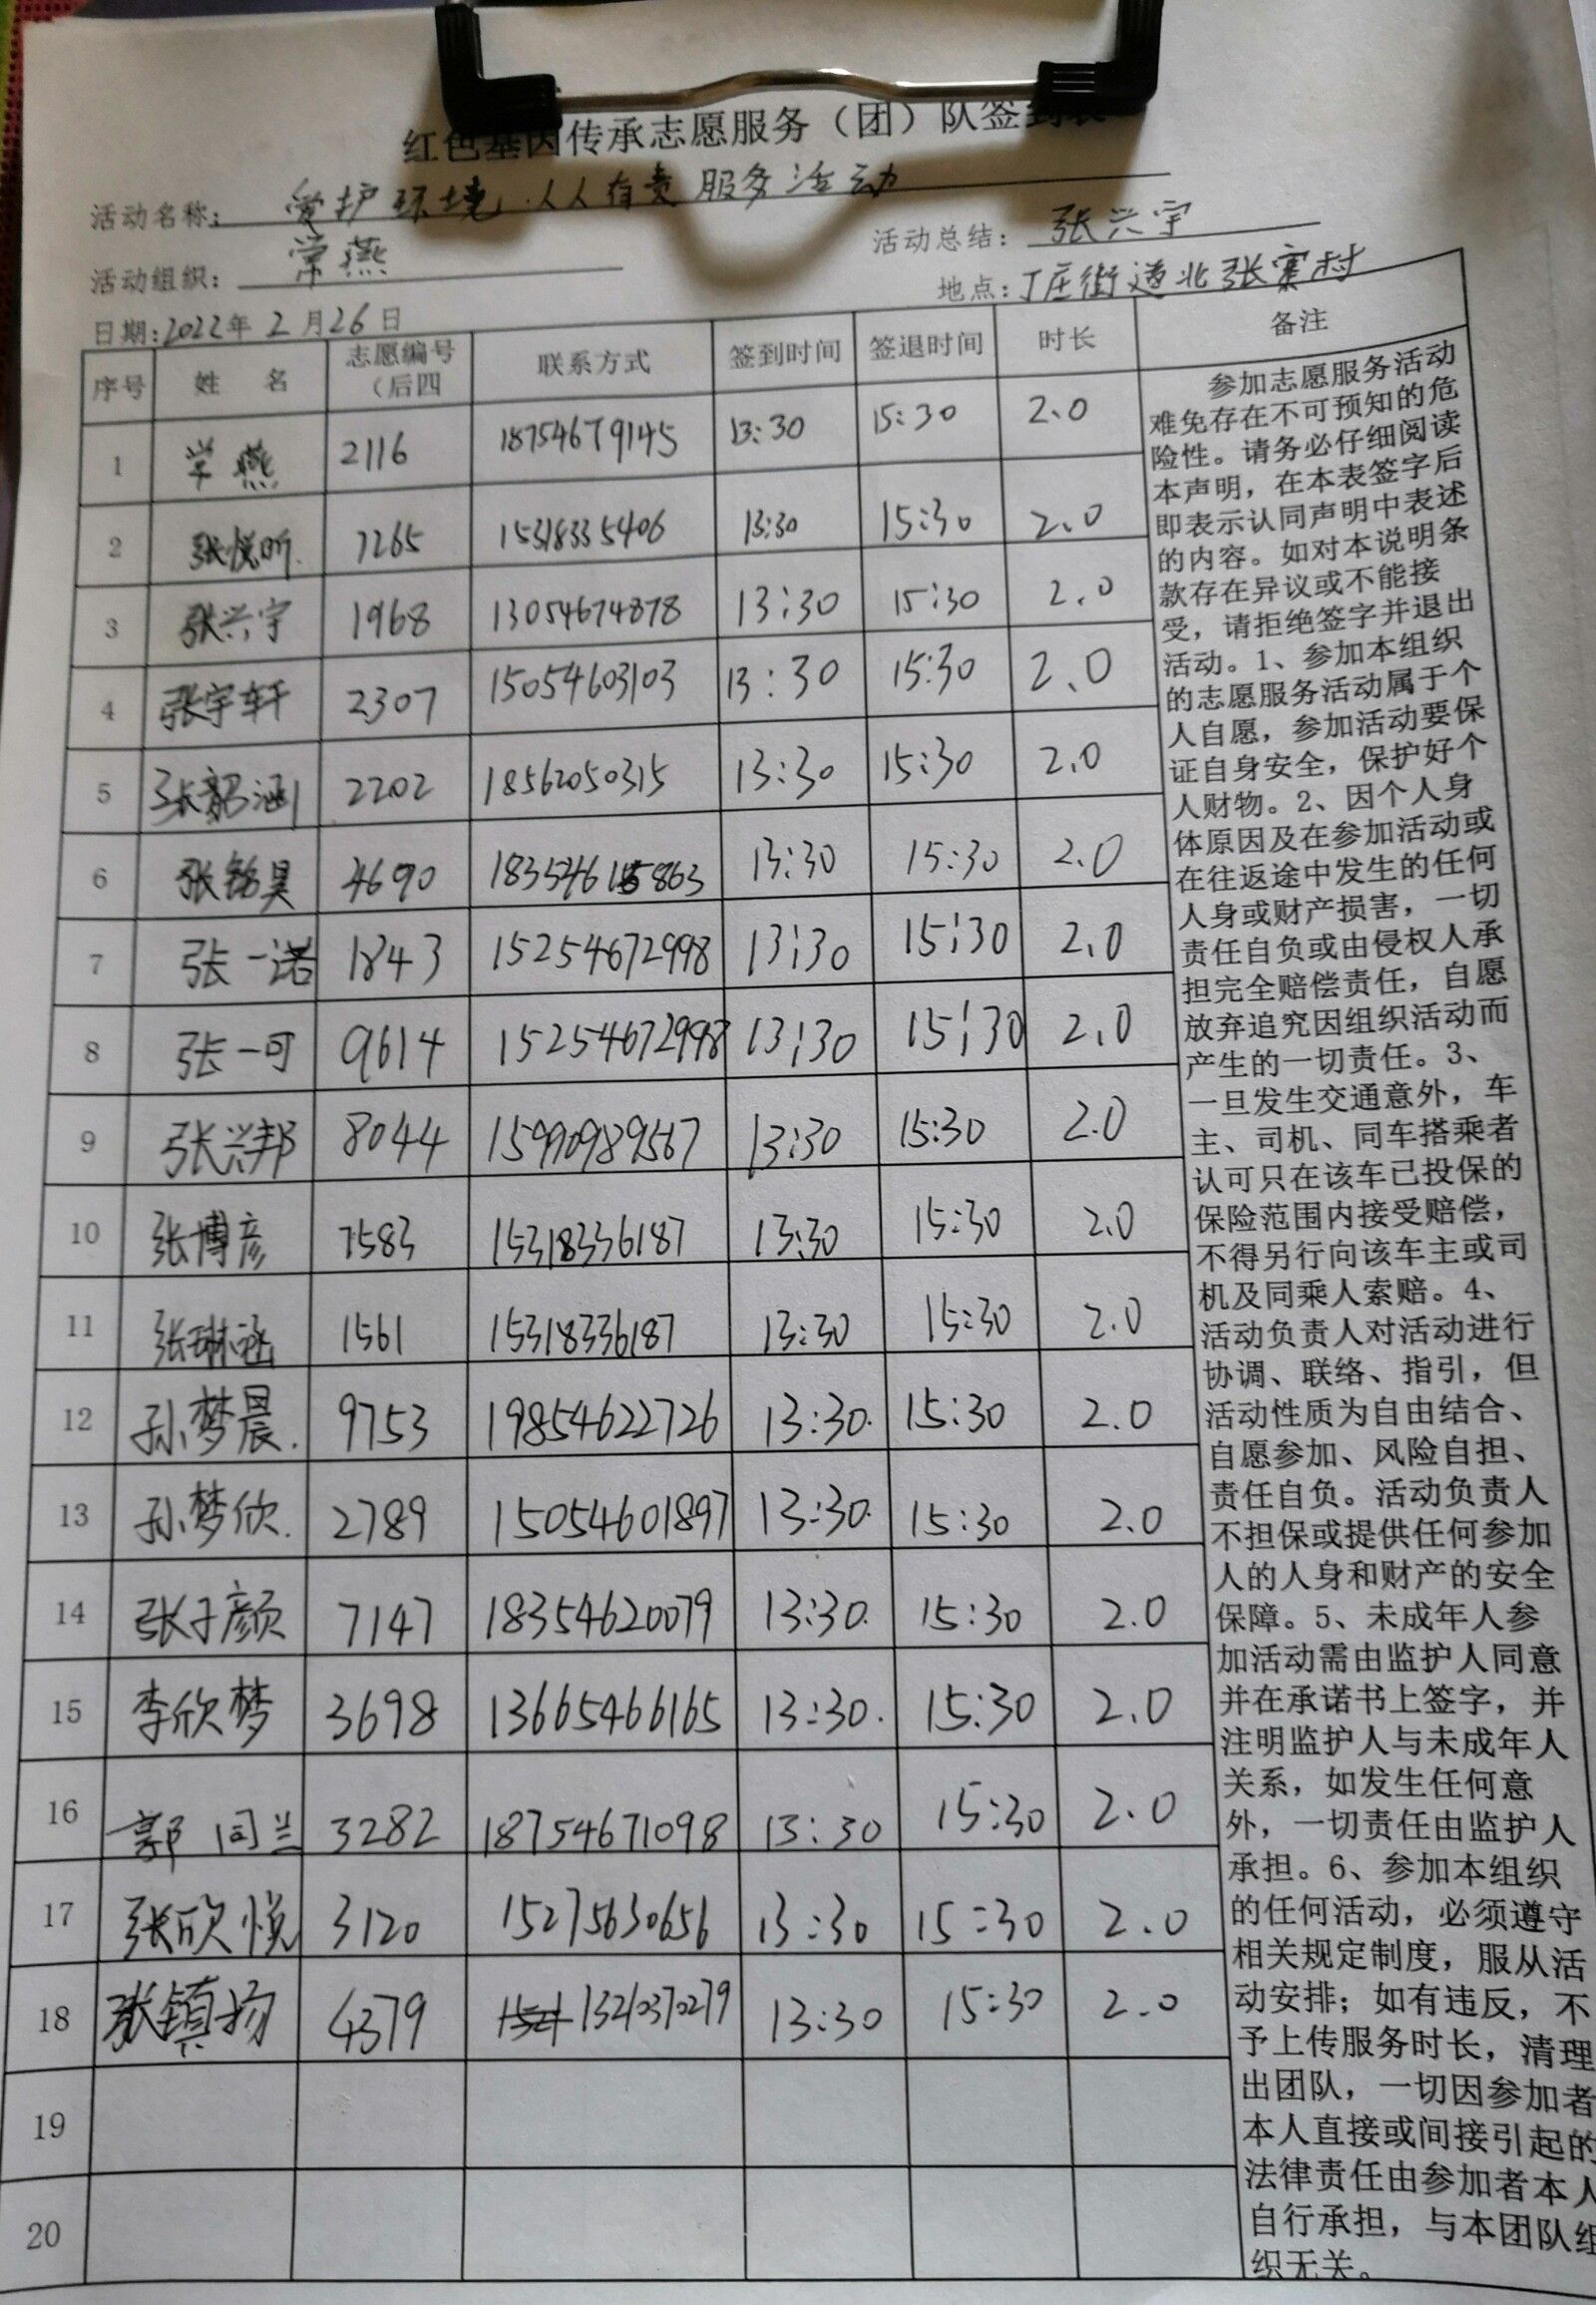 红色基因传承志愿服务（团）队签到表
活动名称：爱护环境.人人有责服务活动
活动组织：常燕 活动总结：张兴宇
日期:2022年2月26日 地点:丁庄街道北张寨村
序号 姓名 志愿编号（后四 联系方式 签到时间 签退时间 时长 备注
1 常燕 2116 18754679145 13:30 15:30 2.0
2 张悦昕 7265 15318335406 13:30 15:30 2.0
3 张兴宇 1968 13054674878 13:30 15:30 2.0
4 张宇轩 2307 15054603103 13:30 15:30 2.0
5 张韶涵 2202 18562050315 13:30 15:30 2.0
6 张铭昊 4690 13:30 15:30 2.0
7 张一诺 1843 15254672998 13:30 15:30 2.0
8 张一可 9614 15254672998 13:30 15:30 2.0
9 张兴邦 8044 15990989567 13:30 15:30 2.0
10 张博彦 7583 15318336187 13:30 15:30 2.0
11 张琳涵 1561 15318336187 13:30 15:30 2.0
12 孙梦晨. 9753 19854622726 13:30. 15:30 2.0
13 孙梦欣. 2789 15054601897 13:30. 15:30 2.0
14 张子颜 7147 18354620079 13:30. 15:30 2.0
15 李欣梦 3698 13665466165 13:30. 15:30 2.0
16 郭同兰 3282 18754671098 13:30 15:30 2.0
17 张欣悦 3120 15275630656 13:30 15:30 2.0
18 张镇扬 4379 13210370279 13:30 15:30 2.0
19
20
参加志愿服务活动
难免存在不可预知的危
险性。请务必仔细阅读
本声明，在本表签字后
即表示认同声明中表述
的内容。如对本说明条
款存在异议或不能接
受，请拒绝签字并退出
活动。1、参加本组织
的志愿服务活动属于个
人自愿，参加活动要保
证自身安全，保护好个
人财物。2、因个人身
体原因及在参加活动或
在往返途中发生的任何
人身或财产损害，一切
责任自负或由侵权人承
担完全赔偿责任，自愿
放弃追究因组织活动而
产生的一切责任。3、
一旦发生交通意外，车
主、司机、同车搭乘者
认可只在该车已投保的
保险范围内接受赔偿，
不得另行向该车主或司
机及同乘人索赔。4、
活动负责人对活动进行
协调、联络、指引，但
活动性质为自由结合、
自愿参加、风险自担、
责任自负。活动负责人
不担保或提供任何参加
人的人身和财产的安全
保障。5、未成年人参
加活动需由监护人同意
并在承诺书上签字，并
注明监护人与未成年人
关系，如发生任何意
外，一切责任由监护人
承担。6、参加本组织
的任何活动，必须遵守
相关规定制度，服从活
动安排；如有违反，不
予上传服务时长，清理
出团队，一切因参加者
本人直接或间接引起的
法律责任由参加者本人
自行承担，与本团队组
织无关。